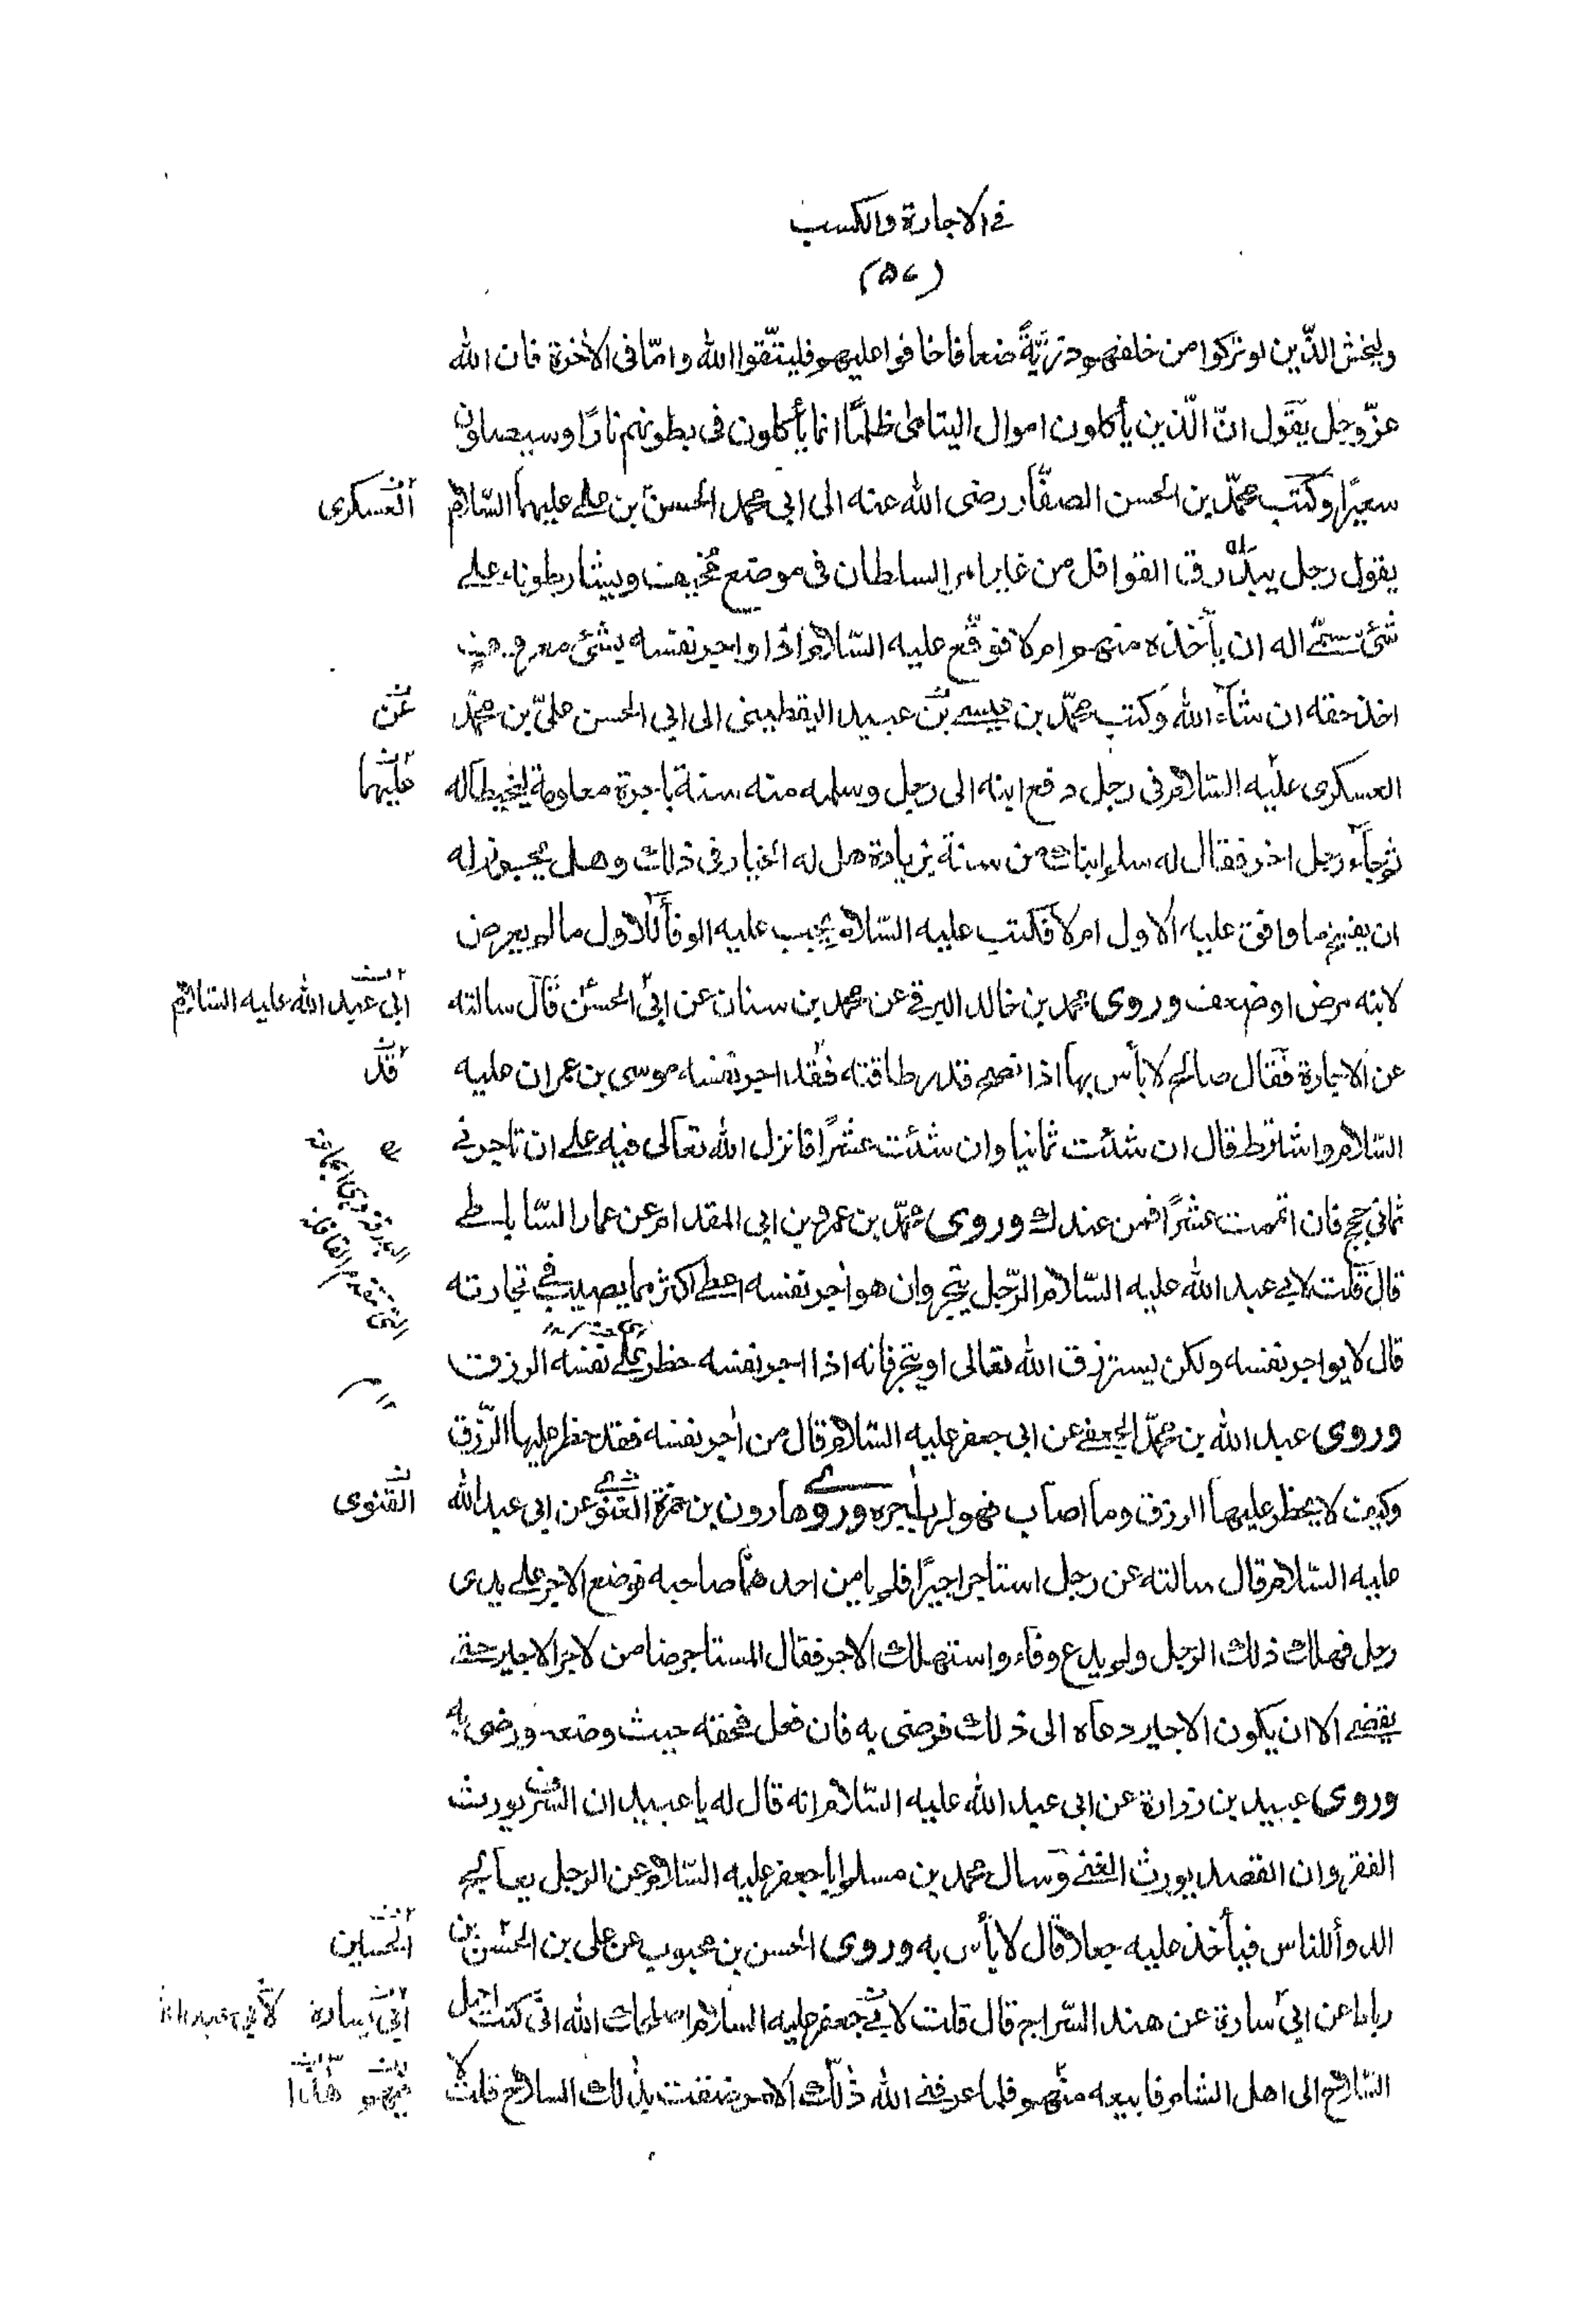 في الاجارة والكسب
(٥٧)
وليخش الذّين لو تركوا من خلفهم ذرّيّةً ضعافا خافوا عليهم فليتّقوا الله وامّا فى الأخرة فان الله
عزّ وجل يقول انّ الّذين يأكلون اموال اليتامى ظلمًا انما يأكلون فى بطونهم نارًا وسيصلون
سعيرًا وكتب محمّد بن الحسن الصفّار رضى الله عنه الى ابى محمد الحسن بن علے عليهما السّلام
العسكرى
يقول رجل يبذرق القوافل من غير امر السلطان فى موضع مخيف ويشارطونه علے
شئ مسمّے اله ان يأخذه منهم ام لا فوقّع عليه السّلام اذا واجر نفسه بشئ معروف
اخذ حقه ان شاء الله وكتب محمّد بن عيسے بن عبيد اليقطينى الى ابى الحسن علىّ بن محمّد
عن
العسكرى عليه السّلام فى رجل دفع ابنه الى رجل وسلمه منه سنة باجرة معلومة ليخيط له
عليهما
ثم جاء رجل اخر فقال له سلم ابنك من سنة بزيادة هل له الخيار فى ذلك وهل يجوز له
ان يفسخ ما وافق عليه الاول ام لا فكتب عليه السّلام يجب عليه الوفاء للاول ما لم يعرض
لابنه مرض او ضعف وروى محمد بن خالد البرقے عن محمد بن سنان عن ابى الحسن قال سالته
ابى عبد الله عليه السّلام
عن الاجارة فقال صالح لا بأس بها اذا نصح قدر طاقته فقد اجر نفسه موسى بن عمران عليه
قد
السّلام واشترط قال ان شئت ثمانيا وان شئت عشرًا فانزل الله تعالى فيه علے ان تاجرنے
ثمانى حجج فان اتممت عشرًا فمن عندك وروى محمّد بن عمرو بن ابى المقدام عن عمار السّاباطے
قال قلت لابى عبد الله عليه السّلام الرّجل يتجر وان هو اجر نفسه اعطے اكثر مما يصيب فے تجارته
قال لا يواجر نفسه ولكن يسترزق الله تعالى ويتجر فانه اذا اجر نفسه حظر علے نفسه الرزق
وروى عبد الله بن محمّد الجعفے عن ابى جعفر عليه السّلام قال من اجر نفسه فقد حظر عليها الرّزق
وكيف لا يحظر عليها الرزق وما اصاب فهو لرب اجره وروے هارون بن حمزة الغنوے عن ابى عبد الله
الغنوى
عليه السّلام قال سالته عن رجل استاجر اجيرًا فلم يامن احدهما صاحبه فوضع الاجر علے يدى
رجل فهلك ذلك الرجل ولم يدع وفاء واستهلك الاجر فقال المستاجر ضامن لاجر الاجير حتے
يقضے الا ان يكون الاجير دعاه الى ذلك فرضى به فان فعل فحقه حيث وضعه ورضى به
وروى عبيد بن زرارة عن ابى عبد الله عليه السّلام انه قال له يا عبيد ان السرف يورث
الفقر وان القصد يورث الغنے وسال محمد بن مسلم ابا جعفر عليه السّلام عن الرجل يعالج
الدواء للناس فيأخذ عليه جعلا قال لا بأس به وروى الحسن بن محبوب عن على بن الحسن بن
الحسين
رباط عن ابى سارة عن هند السّراج قال قلت لابى جعفر عليه السلام اصلحك الله انّى كنت احمل
ابى سارة
السّلاح الى اهل الشام فابيعه منهم فلما عرفنے الله ذلك الامر ضقت بذلك السلاح قلت لا
فيهم هذا